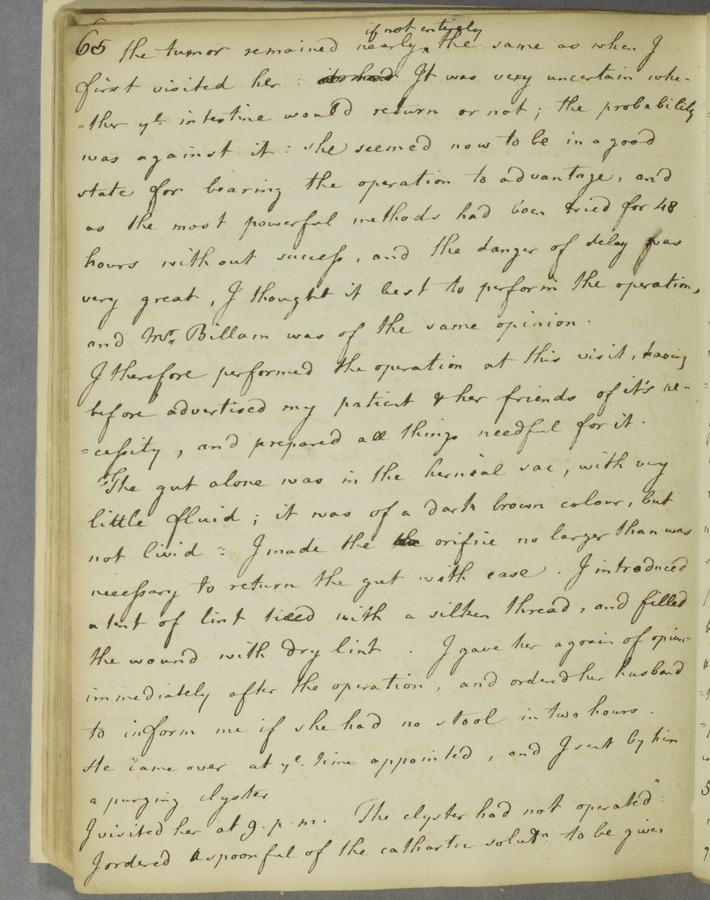 65 the tumor remained nearly, if not entirely the same as when I
first visited her : its had It was very uncertain whe-
-ther ye. intestine would return or not; the probability
was against it : she seemed now to be in a good
state for bearing the operation to advantage, and
as the most powerful methods had been tried for 48
hours without success, and the danger of delay was
very great, I thought it best to perform the operation,
and Mr. Billam was of the same opinion.
I therefore performed the operation at this visit, having
before advertised my patient & her friends of it's ne-
=cessity, and prepared all things needful for it.
The gut alone was in the hernial sac, with very
little fluid; it was of a dark brown colour, but
not livid : I made the the orifice no larger than was
necessary to return the gut with ease. I introduced
a tent of lint tied with a silken thread, and filled
the wound with dry lint. I gave her a grain of opium
immediately after the operation, and ordered her husband
to inform me if she had no stool in two hours.
He came over at ye. time appointed, and I sent by him
a purging clyster
I visited her at 9. p. m. The clyster had not operated :
I ordered a spoonful of the cathartic solutn to be given